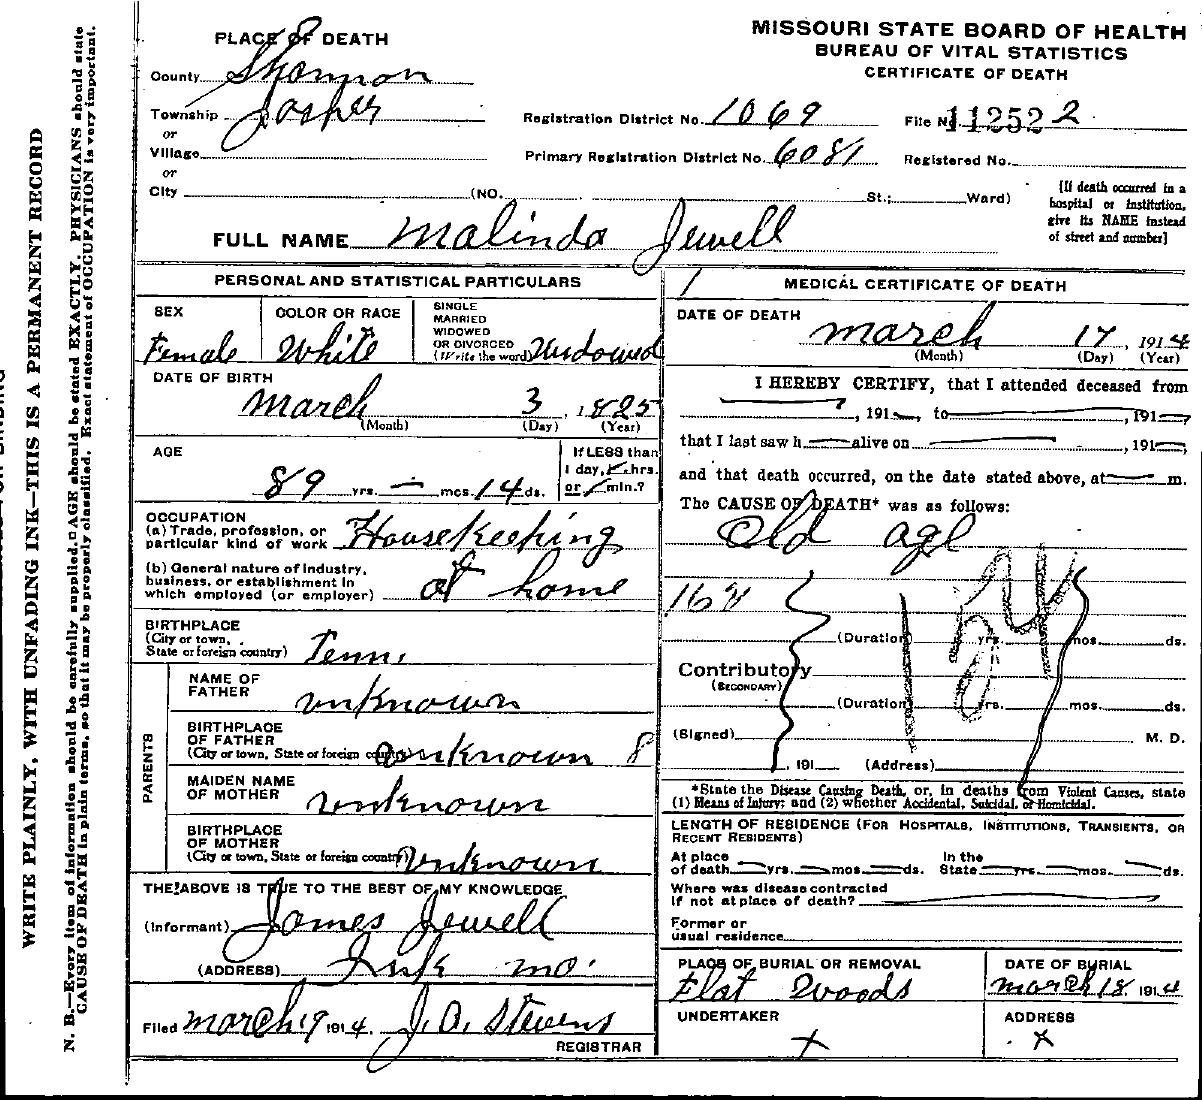 MISSOURI STATE BOARD OF HEALTH
BUREAU OF VITAL STATISTICS
CERTIFICATE OF DEATH
PLACE OF DEATH
County Shannon
Township Jasper
or
Village
or
City (NO. St.; Ward)
Registration District No. 1069 File No. 11252 2
Primary Registration District No. 6081 Registered No.
[If death occurred in a
hospital or institution,
give its NAME instead
of street and number]
FULL NAME Malinda Jewell
PERSONAL AND STATISTICAL PARTICULARS
SEX Female
COLOR OR RACE White
SINGLE
MARRIED
WIDOWED
OR DIVORCED
(Write the word) Widowed
DATE OF BIRTH
March 3, 1825
(Month) (Day) (Year)
AGE
89 yrs. — mos. 14 ds.
If LESS than
1 day, hrs.
or min.?
OCCUPATION
(a) Trade, profession, or
particular kind of work Housekeeping
(b) General nature of industry,
business, or establishment in
which employed (or employer) at home
BIRTHPLACE
(City or town,
State or foreign country) Tenn.
PARENTS
NAME OF
FATHER unknown
BIRTHPLACE
OF FATHER
(City or town, State or foreign country) unknown 8
MAIDEN NAME
OF MOTHER unknown
BIRTHPLACE
OF MOTHER
(City or town, State or foreign country) unknown
THE ABOVE IS TRUE TO THE BEST OF MY KNOWLEDGE
(Informant) James Jewell
(ADDRESS) Ink mo.
Filed March 19 1914. J. A. Stevens
REGISTRAR
MEDICAL CERTIFICATE OF DEATH
DATE OF DEATH
March 17, 1914
(Month) (Day) (Year)
I HEREBY CERTIFY, that I attended deceased from
, 191 , to , 191
that I last saw h alive on , 191 ,
and that death occurred, on the date stated above, at m.
The CAUSE OF DEATH* was as follows:
Old age
154
(Duration) yrs. mos. ds.
Contributory
(SECONDARY)
(Duration) yrs. mos. ds.
(Signed) M. D.
, 191 (Address)
*State the Disease Causing Death, or, in deaths from Violent Causes, state
(1) Means of Injury; and (2) whether Accidental, Suicidal, or Homicidal.
LENGTH OF RESIDENCE (FOR HOSPITALS, INSTITUTIONS, TRANSIENTS, OR
RECENT RESIDENTS)
At place In the
of death yrs. mos. ds. State yrs. mos. ds.
Where was disease contracted
if not at place of death?
Former or
usual residence
PLACE OF BURIAL OR REMOVAL
Flat Woods
DATE OF BURIAL
March 18, 1914
UNDERTAKER
x
ADDRESS
x
WRITE PLAINLY, WITH UNFADING INK—THIS IS A PERMANENT RECORD
N. B.—Every item of information should be carefully supplied. AGE should be stated EXACTLY. PHYSICIANS should state
CAUSE OF DEATH in plain terms, so that it may be properly classified. Exact statement of OCCUPATION is very important.